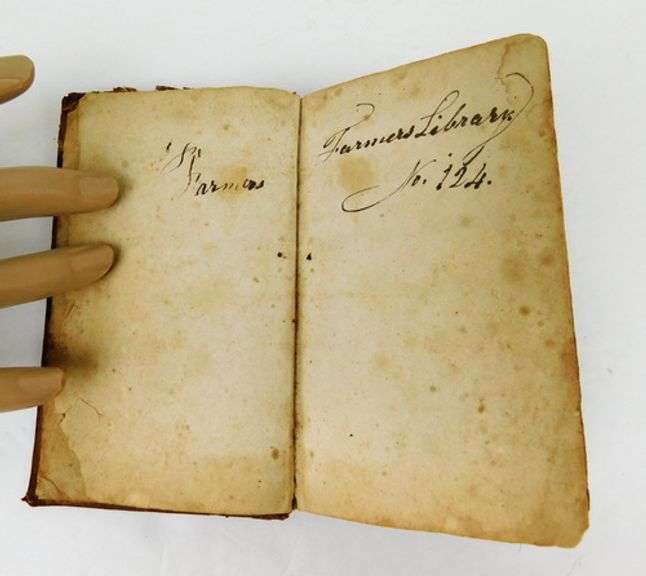 Farmers
Farmers Library
No. 124.